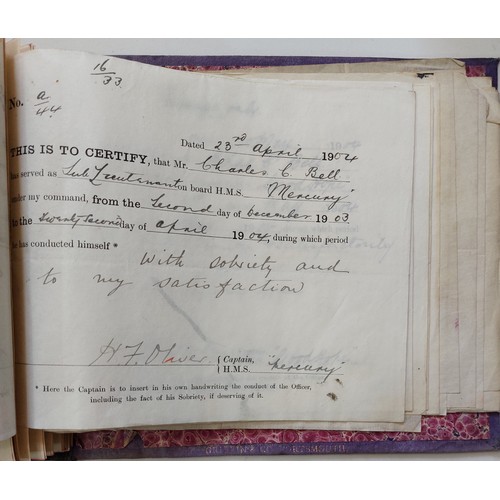 16
33
No. a
44
Dated 23rd April 1904
THIS IS TO CERTIFY, that Mr. Charles C. Bell
has served as Sub Lieutenant on board H.M.S. "Mercury"
under my command, from the Second day of December 1903
to the Twenty Second day of April 1904, during which period
he has conducted himself *
With sobriety and
to my satisfaction
H F Oliver { Captain,
{ H.M.S. "Mercury"
* Here the Captain is to insert in his own handwriting the conduct of the Officer,
including the fact of his Sobriety, if deserving of it.